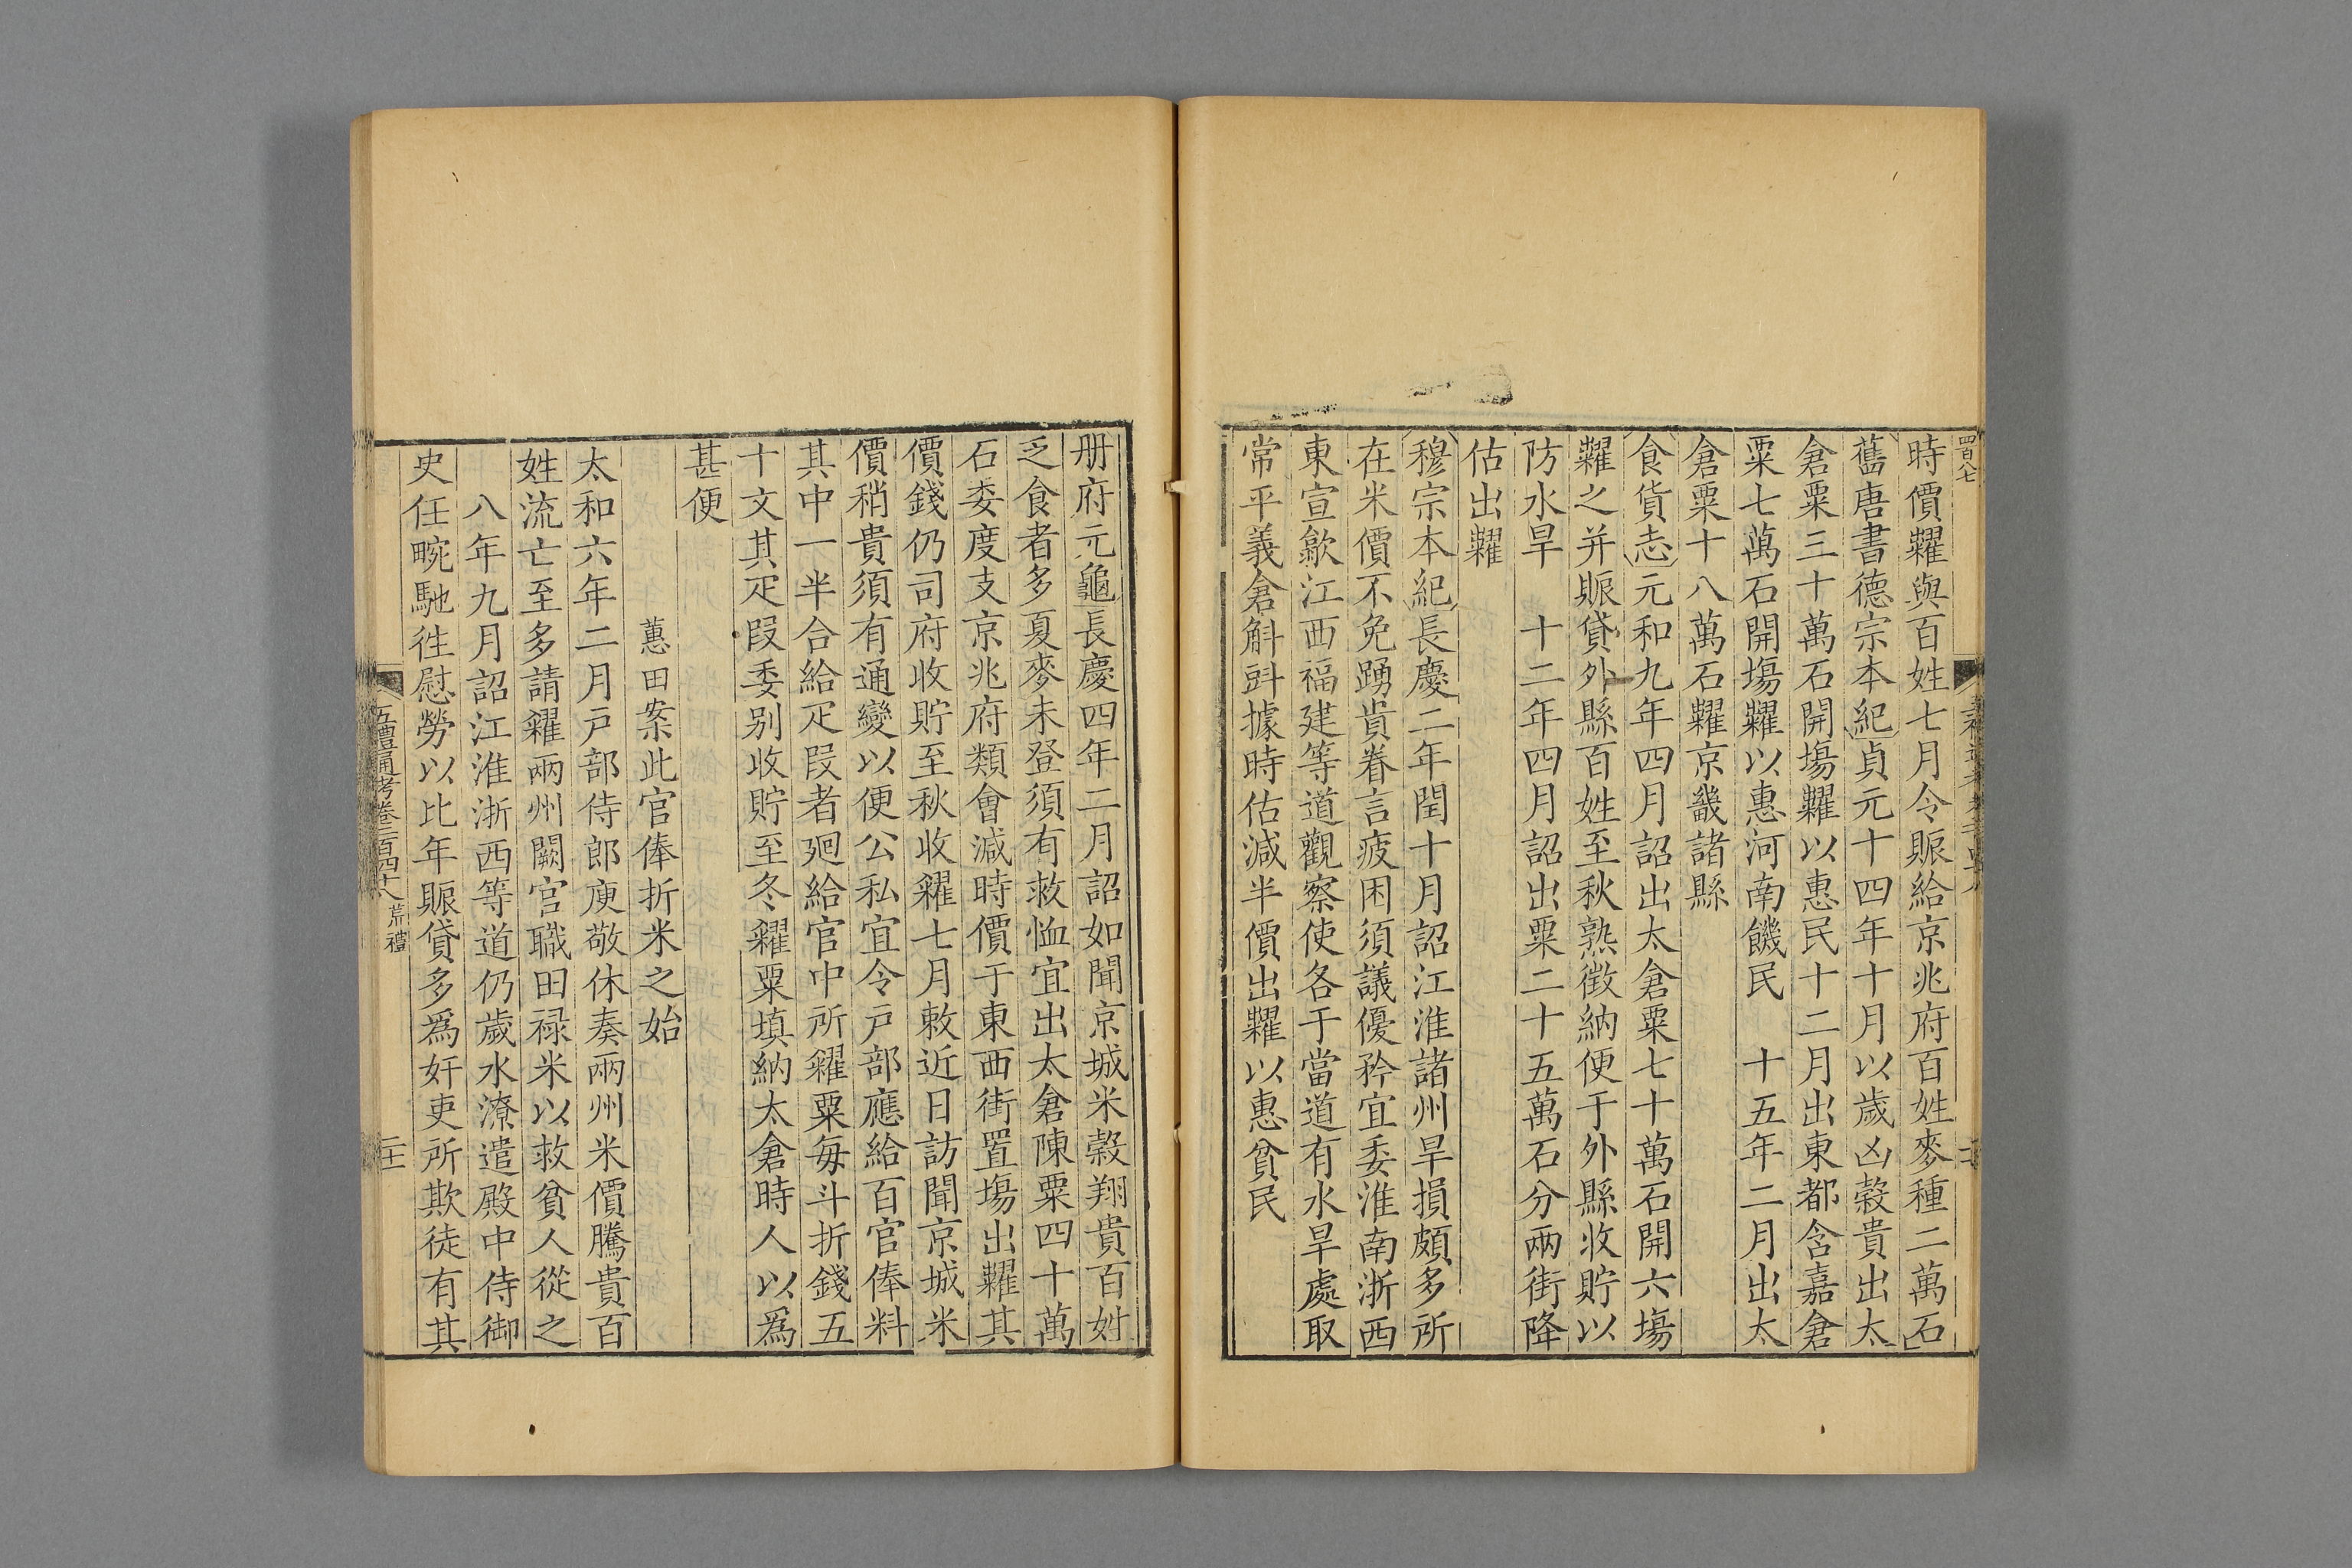 四百八七
時價糶與百姓七月令賑給京兆府百姓麥種二萬石
舊唐書德宗本紀貞元十四年十月以歲凶穀貴出太
倉粟三十萬石開場糶以惠民十二月出東都含嘉倉
粟七萬石開場糶以惠河南饑民　十五年二月出太
倉粟十八萬石糶京畿諸縣
食貨志元和九年四月詔出太倉粟七十萬石開六場
糶之并賑貸外縣百姓至秋熟徵納便于外縣收貯以
防水旱　十二年四月詔出粟二十五萬石分兩街降
估出糶
穆宗本紀長慶二年閏十月詔江淮諸州旱損頗多所
在米價不免踴貴眷言疲困須議優矜宜委淮南浙西
東宣歙江西福建等道觀察使各于當道有水旱處取
常平義倉斛㪷據時估減半價出糶以惠貧民
册府元龜長慶四年二月詔如聞京城米穀翔貴百姓
乏食者多夏麥未登須有救恤宜出太倉陳粟四十萬
石委度支京兆府類會減時價于東西街置場出糶其
價錢仍司府收貯至秋收糴七月敕近日訪聞京城米
價稍貴須有通變以便公私宜令戸部應給百官俸料
其中一半合給疋段者廻給官中所糴粟每斗折錢五
十文其疋段委别收貯至冬糴粟填納太倉時人以爲
甚便
蕙田案此官俸折米之始
太和六年二月戸部侍郎庾敬休奏兩州米價騰貴百
姓流亡至多請糴兩州闕官職田禄米以救貧人從之
八年九月詔江淮浙西等道仍歲水潦遣殿中侍御
史任畹馳徃慰勞以比年賑貸多爲奸吏所欺徒有其
五禮通考卷二百四十八　荒禮
二十一